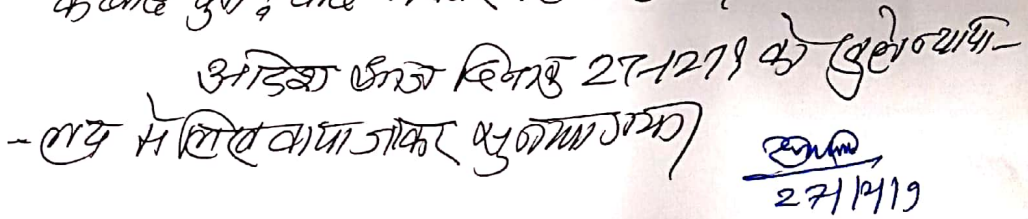 आदेश आज दिनांक 27-12-19 को खुले न्याया-
-लय में लिखवाया जाकर सुनाया गया
27/12/19